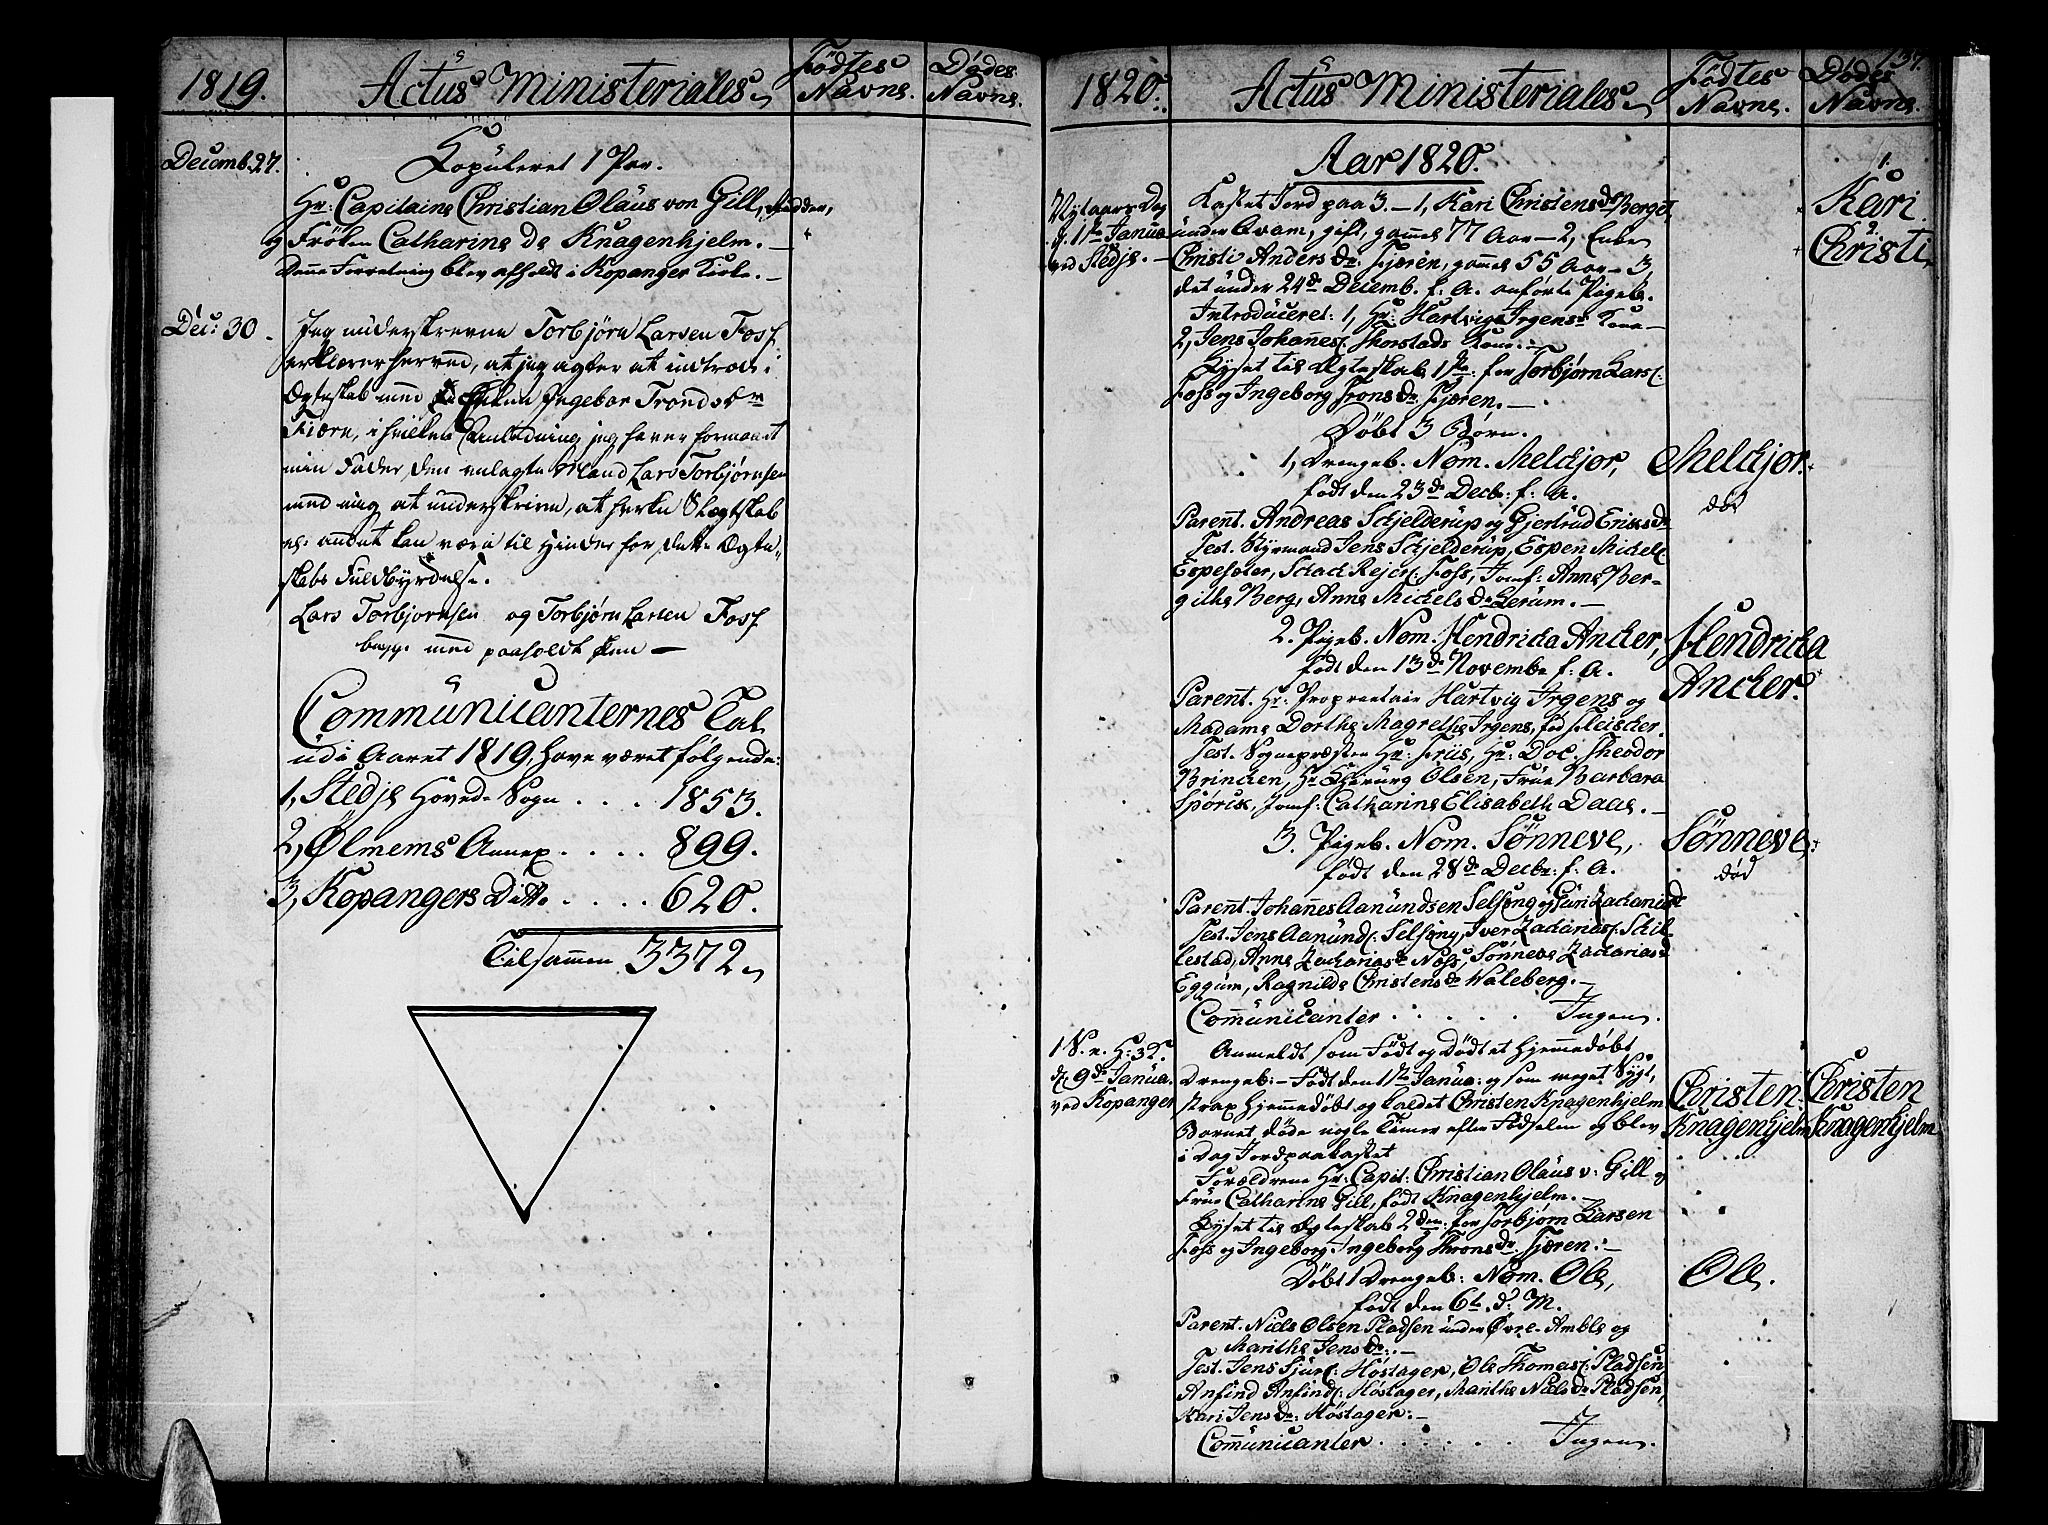 1819.
Actus Ministeriales
Födtes Navne.
Dødes Navne.
Decemb. 27.
Kopuleret 1 Par.
Hr: Capitaine Christian Olaus von Gill,
og Fröken Catharine de Knagenhjelm. —
Denne Forretning blev afholdt i Kopanger Kirke. —
Dec: 30
Jeg underskrevne Torbjørn Larsen Foss
erklærer herved, at jeg agter at indtræde i
Ægteskab med Enken Ingebor Tronds Dr
Fiære, i hvilken Anledning jeg haver formaaet
min Fader den Mand Lars Torbjørnsen
med mig at underskrive, at hverken Slægtskab
el: andet kan være til Hinder for dette Ægte-
skabs Fuldbyrdelse.
Lars Torbjørnsen og Torbjørn Larsen Foss
begge med paaholdt Pen —
Communicanternes Tal
udi Aaret 1819, have været følgende:
1, Stedje Hoved-Sogn . . . . 1853.
2, Ølmems Annex . . . . 899.
3, Kopangers Ditto . . . . 620.
Tilsammen 3372
1820.
Actus Ministeriales
Födtes Navne.
Dødes Navne.
137.
Aar 1820.
Nytaars Dag
d. 1ste Janua
ved Stedje. —
Kastet Jord paa 3. — 1, Kari Christens Dr Berget
under Qvam, gift, gammel 77 Aar — 2, Enke
Christi Anders Dr Fjæren, gammel 55 Aar — 3,
det under 24de Decemb. f: A. anførte Pigeb.
Introduceret: 1, Hr: Hartvig Irgens's Kone —
2, Jens Johannes: Skorstads Kone: —
Lyset til Ægteskab 1ste: for Torbjørn Lars:
Foss og Ingeborg Trons Dr Fjæren. —
Døbt 3 Børn.
1, Drengeb. Nom. Melchjor,
født den 23de Decbr: f: A.
Parent. Andreas Schjelderup og Gjertrud Erics Dr
Test. Styrmand Jens Schjelderup, Espen Michels:
Espeseter, Schack Rejers: Foss, Jomf: Anne Ber-
githe Berg, Anne Michels Dr Lerum. —
2. Pigeb. Nom. Hendricka Ancker,
født den 13de Novembr f: A.
Parent. Hr: Proprietair Hartvig Irgens og
Madame Dorthe Magrethe Irgens, fød Fleischer.
Test. Sognepræsten Hr: Friis, Hr: Doc. Theodor
Brincken, Hr Chirurg Olsen, Frue Barbara
Sporck, Jomf: Catharine Elisabeth Daae. —
3. Pigeb. Nom. Sønneve,
født den 28de Decbr: f: A.
Parent. Johannes Aamundsen Selseng og Guri Zacharias Dr
Test. Jens Aamunds: Selseng, Iver Zacharias: Schil-
lestad, Anne Zacharias Dr Næss, Sønneve Zacharias Dr
Eggum, Ragnilde Christens Dr Waleberg. —
Communicanter . . . . . Ingen.
1 S. e. H: 3 K.
d. 9de Janua.
ved Kopanger
Anmeldt som Født og Dødt et hjemmedøbt
Drengeb: — Født den 1ste Janua: og som meget Sygt,
strax hjemmedøbt og kaldet Christen Knagenhjelm
Barnet døde nogle Timer efter Fødselen og blev
i Dag Jordpaakastet
Forældrene Hr: Capit: Christian Olaus v: Gill og
Frue Catharine Gill, født Knagenhjelm. —
Lyset til Ægteskab 2den: for Torbjørn Larsen
Foss og Ingeborg Ingeborg Throns Dr. Fjæren: —
Døbt 1 Drengeb: Nom. Ole,
født den 6t. d: M.
Parent. Niels Olsen Pladsen under Øvre-Amble og
Marithe Jens Dr: —
Test. Jens Sjurs: Høstager, Ole Thomas: Pladsen,
Anfind Anfinds: Høstager, Marithe Niels Dr Pladsen,
Kari Jens Dr: Høstager: —
Communicanter . . . . . Ingen.
Melchjor.
død
Hendricka
Ancker.
Sønneve
død
Christen
Knagenhjelm
Ole.
1.
Kari
2.
Christi
Christen
Knagenhjelm